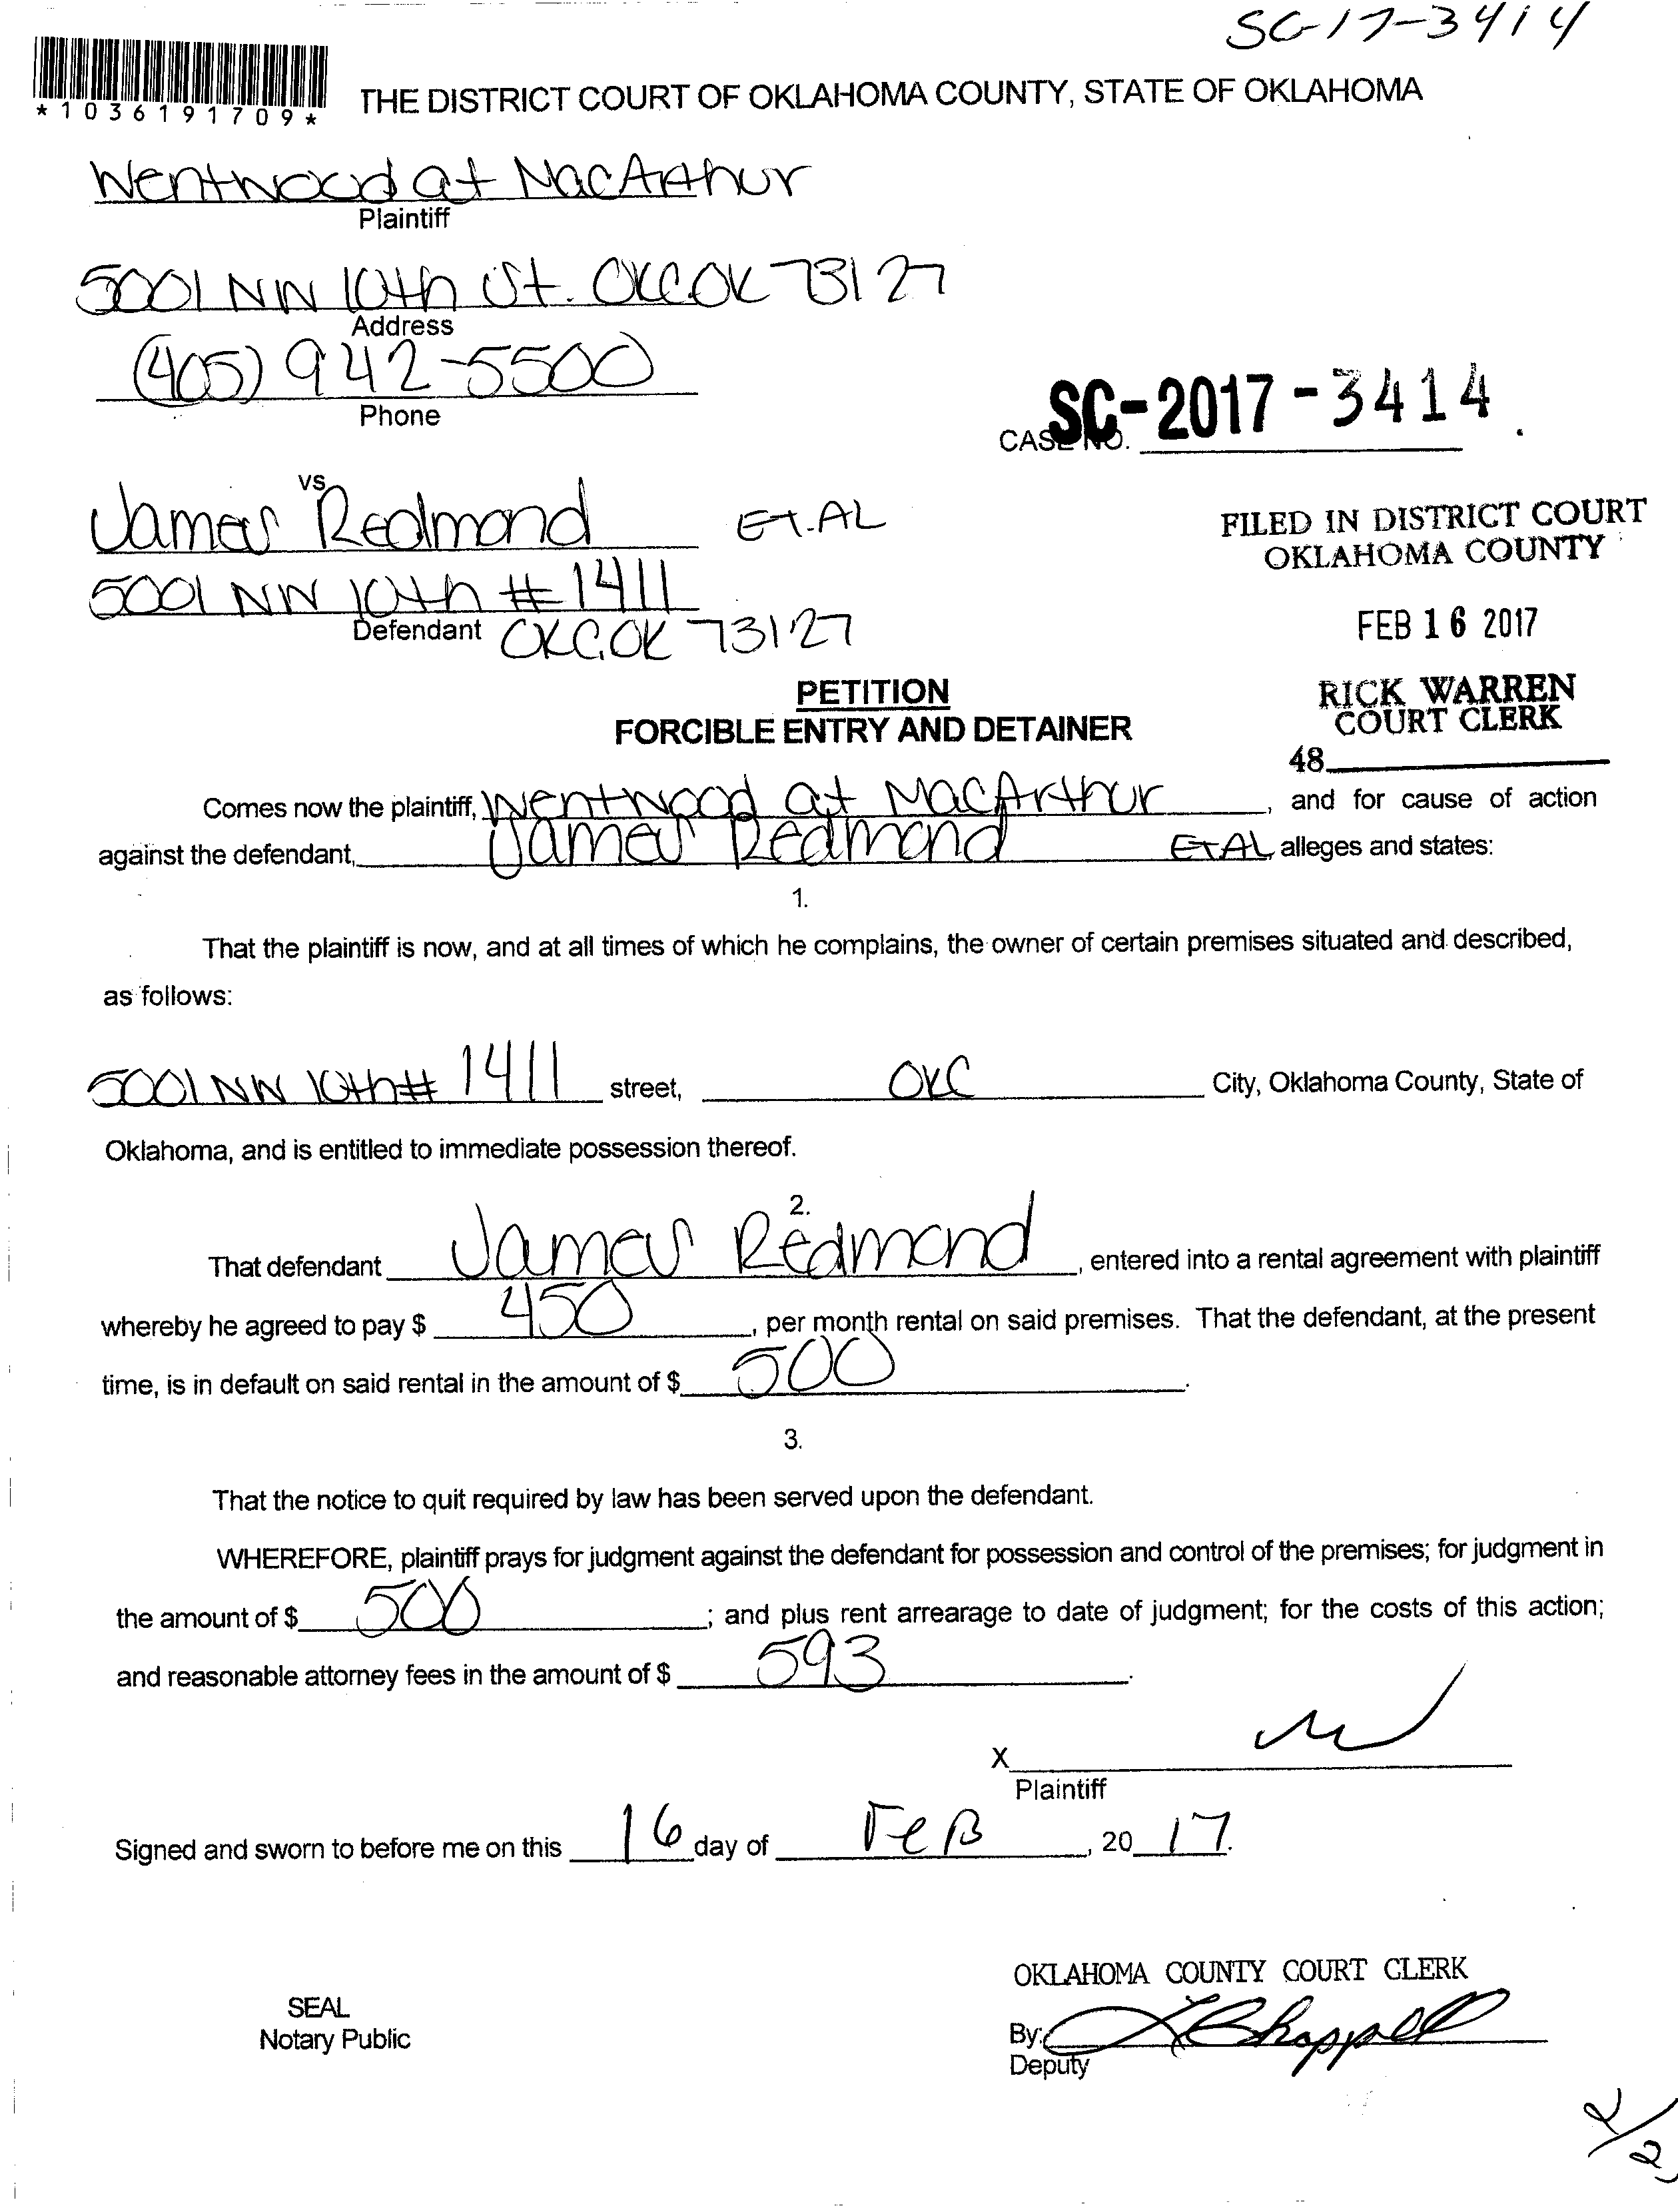 SC-17-3414
*1036191709*
THE DISTRICT COURT OF OKLAHOMA COUNTY, STATE OF OKLAHOMA
Wentwood at MacArthur
Plaintiff
5001 NW 10th St. OKC.OK 73127
Address
(405) 942-5500
Phone
CASE NO. SC-2017-3414
vs
James Redmond ET.AL
5001 NW 10th #1411
Defendant OKC.OK 73127
FILED IN DISTRICT COURT
OKLAHOMA COUNTY
FEB 16 2017
RICK WARREN
COURT CLERK
48
PETITION
FORCIBLE ENTRY AND DETAINER
Comes now the plaintiff, Wentwood at MacArthur, and for cause of action
against the defendant, James Redmond ET AL, alleges and states:
1.
That the plaintiff is now, and at all times of which he complains, the owner of certain premises situated and described,
as follows:
5001 NW 10th # 1411 street, OKC City, Oklahoma County, State of
Oklahoma, and is entitled to immediate possession thereof.
2.
That defendant James Redmond, entered into a rental agreement with plaintiff
whereby he agreed to pay $ 450, per month rental on said premises. That the defendant, at the present
time, is in default on said rental in the amount of $ 500.
3.
That the notice to quit required by law has been served upon the defendant.
WHEREFORE, plaintiff prays for judgment against the defendant for possession and control of the premises; for judgment in
the amount of $ 500; and plus rent arrearage to date of judgment; for the costs of this action;
and reasonable attorney fees in the amount of $ 593.
X
Plaintiff
Signed and sworn to before me on this 16 day of FeB, 20 17.
OKLAHOMA COUNTY COURT CLERK
SEAL
Notary Public
By: Chappell
Deputy